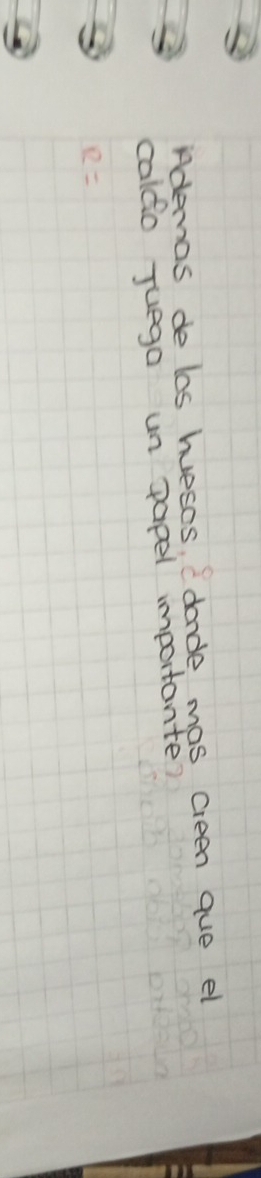 Ademas de los huesos, ¿donde mas creen que el
caldio juega un papel importante?
R=